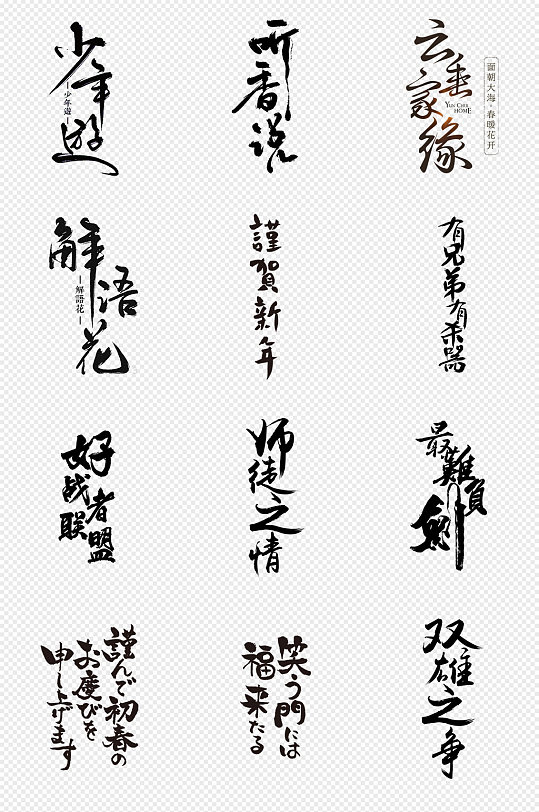 少年遊
少年遊
听香说
云垂家缘
YUN CHUI
HOME
面朝大海·春暖花开
解语花
解語花
謹賀新年
有兄弟有杀器
好战者联盟
师徒之情
最難負劍
謹んで初春の
お慶びを
申し上げます
笑う門には
福来たる
双雄之争